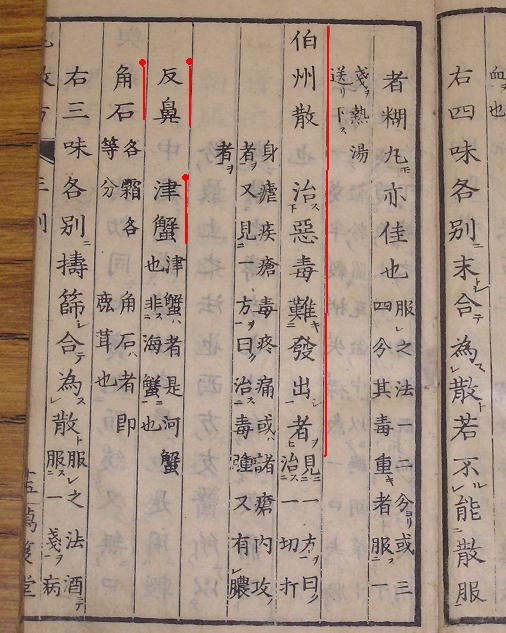 血 也
右四味各別末合為散若不能散服
者糊丸亦佳也服之法二分或三
四分其毒重者服一
戔熱湯
送下
伯州散 治惡毒難發出者見一方曰
治一切折
身瘧疾瘡毒疼痛或諸瘡内攻
者又見一方曰治毒腫又有膿
者
反鼻 津蟹津蟹者是河蟹
也非海蟹也
角石各霜各
等分 角石者即
鹿茸也
右三味各別擣篩合為散服之法酒
服一戔病